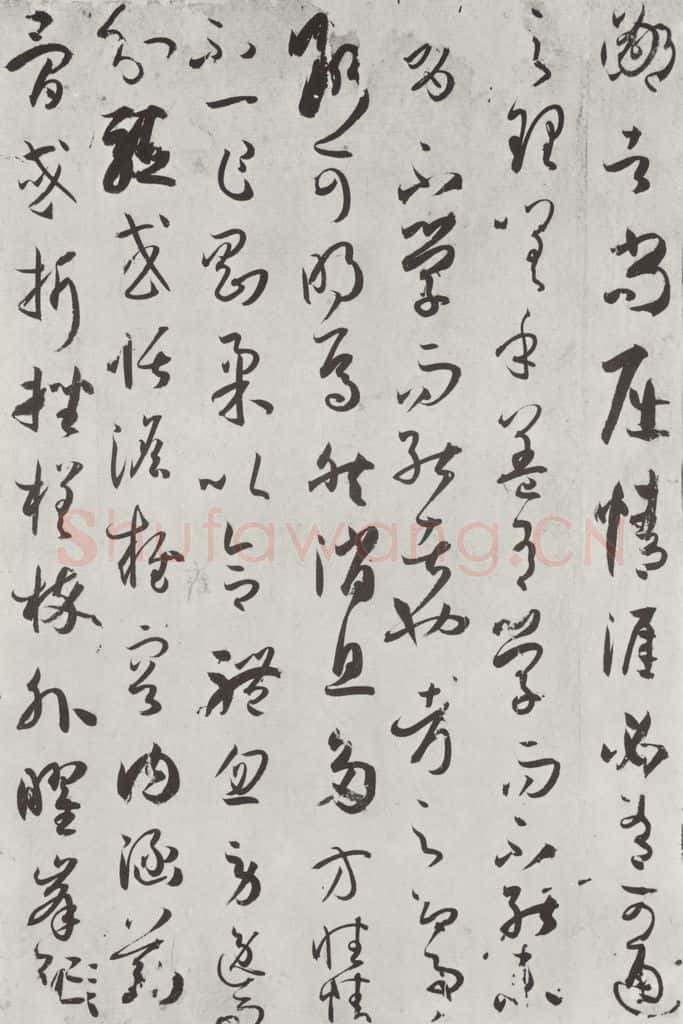 鄙者尚屈情涯必有可通
之理嗟乎蓋有學而不能未
有不學而能者也考之即事
斷可明焉然消息多方性情
不一乍剛柔以合體忽勞逸而
分驅或恬憺雍容內涵筋
骨或折挫槎枿外曜峯芒
Shufawang.CN